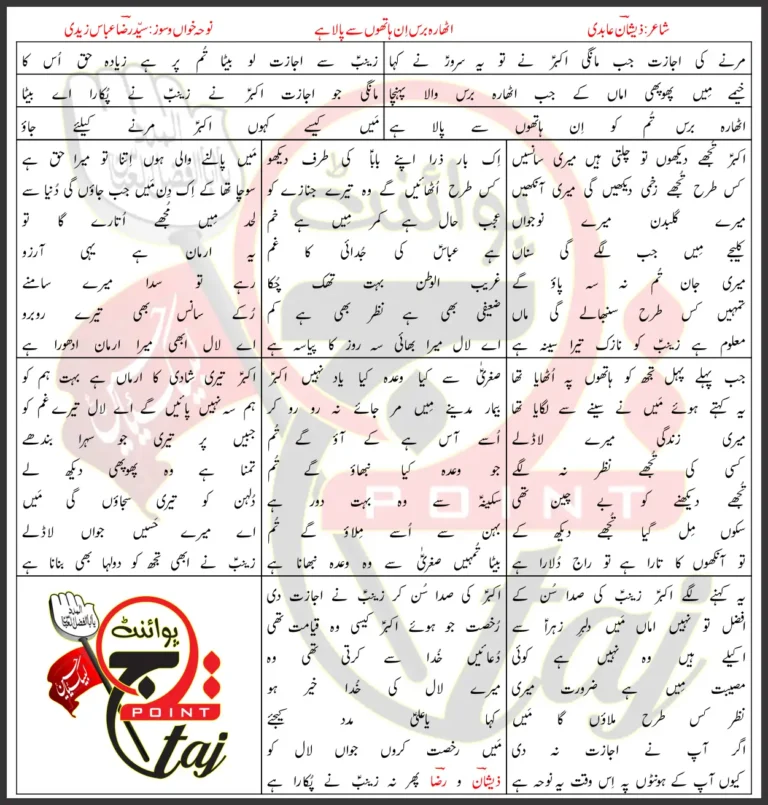 شاعر: ذیشان عابدی
اٹھارہ برس اِن ہاتھوں سے پالا ہے
نوحہ خواں و سوز: سیّد رضا عباس زیدی
مرنے کی اجازت جب مانگی اکبرؑ نے تو یہ سرورؑ نے کہا
زینبؑ سے اجازت لو بیٹا تُم پر ہے زیادہ حق اُس کا
خیمے مِیں پھوپھی اماں کے جب اٹھارہ برس والا پہنچا
مانگی جو اجازت اکبرؑ نے زینبؑ نے پُکارا اے بیٹا
اٹھارہ برس تُم کو اِن ہاتھوں سے پالا ہے
مَیں کیسے کہوں اکبرؑ مرنے کیلئے جاؤ
اکبرؑ تُجھے دیکھوں تو چلتی ہیں میری سانسیں
کس طرح تُجھے زخمی دیکھیں گی میری آنکھیں
میرے گلبدن میرے نوجواں
کلیجے مِیں جب لگے گی سناں
میری جان تُم نہ سہ پاؤ گے
تمہیں کس طرح سنبھالے گی ماں
معلوم ہے زینبؑ کو نازک تیرا سینہ ہے
اِک بار ذرا اپنے باباؑ کی طرف دیکھو
کس طرح اُٹھائیں گے وہ تیرے جنازے کو
عجب حال ہے کمر مِیں ہے خم
ہے عباسؑ کی جُدائی کا غم
غریب الوطن بہت تھک چُکا
ضعیفی بھی ہے نظر بھی ہے کم
اے لال میرا بھائی سہ روز کا پیاسہ ہے
مَیں پالنے والی ہوں اِتنا تو میرا حق ہے
سوچا تھا کے اِک دن مَیں جب جاؤں گی دُنیا سے
لحد مِیں مُجھے اُتارے گا تو
یہ ارمان ہے یہی آرزو
رہے تو سدا میرے سامنے
رُکے سانس بھی تیرے روبرو
اے لال ابھی میرا ارمان ادھورا ہے
جب پہلے پہل تجھ کو ہاتھوں پہ اُٹھایا تھا
یہ کہتے ہوئے مَیں نے سینے سے لگایا تھا
میری زندگی میرے لاڈلے
کسی کی تُجھے نظر نہ لگے
تُجھے دیکھنے کو بے چین تھی
سکوں مِل گیا تُجھے دیکھ کے
تو آنکھوں کا تارا ہے تو راج دُلارا ہے
صغریٰؑ سے کیا وعدہ کیا یاد نہیں اکبرؑ
بیمار مدینے مِیں مر جائے نہ رو رو کر
اُسے آس ہے کے آؤ گے تُم
جو وعدہ کیا نبھاؤ گے تُم
سکینہؑ سے وہ بہت دور ہے
بہن سے اُسے مِلاؤ گے تُم
بیٹا تُمہیں صغریٰؑ سے وہ وعدہ نبھانا ہے
اکبرؑ تیری شادی کا ارماں ہے بہت ہم کو
ہم سہ نہیں پائیں گے اے لال تیرے غم کو
جبیں پر تیری جو سہرا بندھے
تمنا ہے وہ پھوپھی دیکھ لے
دُلہن کو تیری سجاؤں گی مَیں
اے میرے حَسیں جواں لاڈلے
زینبؑ نے ابھی تجھ کو دولہا بھی بنانا ہے
یہ کہنے لگے اکبرؑ زینبؑ کی صدا سُن کے
افضل تو نہیں اماں مَیں دلبرِ زہراؑ سے
اکیلے ہیں وہ نہیں ہے کوئی
مصیبت مِیں ہے ضرورت میری
نظر کس طرح ملاؤں گا مَیں
اگر آپ نے اجازت نہ دی
کیوں آپ کے ہونٹوں پہ اِس وقت یہ نوحہ ہے
اکبرؑ کی صدا سُن کر زینبؑ نے اجازت دی
رُخصت جو ہوئے اکبرؑ کیسی وہ قیامت تھی
دُعائیں خُدا سے کرتی تھی وہ
میرے لال کی خُدا خیر ہو
کہا یاعلیؑ مدد کیجئے
مَیں رخصت کروں جواں لال کو
ذیشان و رضا پھر نہ زینبؑ نے پُکارا ہے
پوائنٹ
تاج
POINT
taj